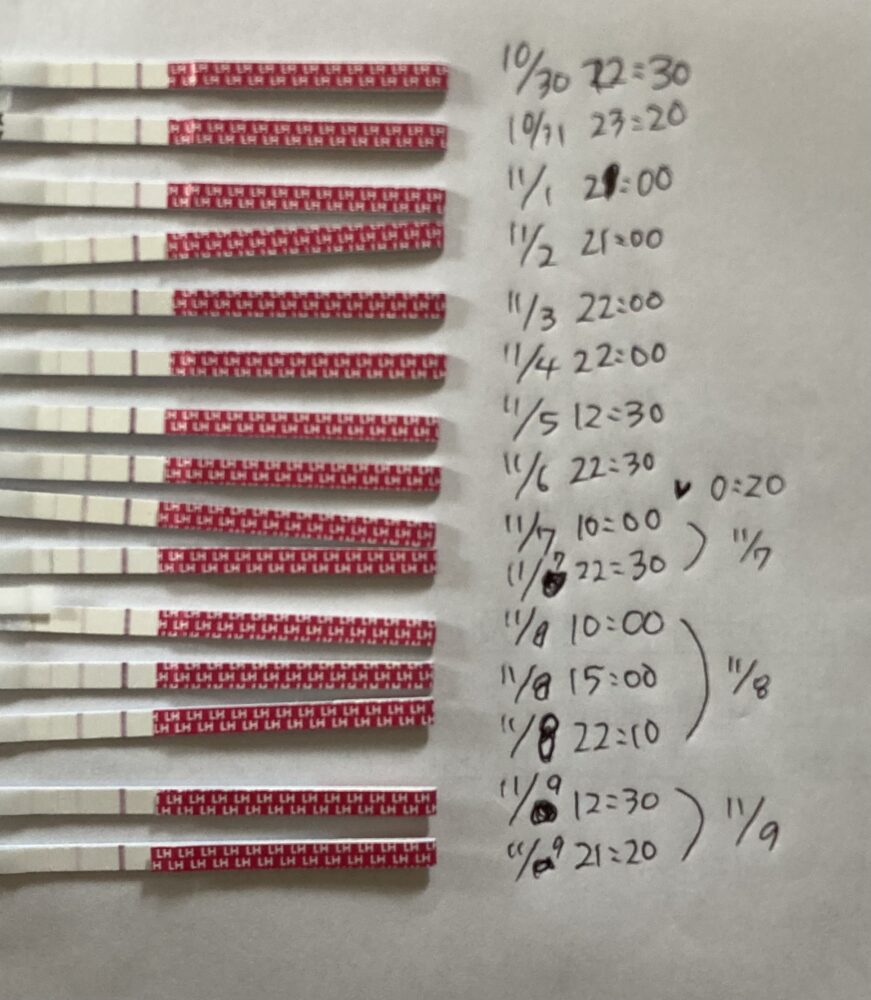 10/30 22:30
10/31 23:20
11/1 21:00
11/2 21:00
11/3 22:00
11/4 22:00
11/5 12:30
11/6 22:30
✓ 0:20
11/7 10:00
11/7 22:30
11/7
11/8 10:00
11/8 15:00
11/8 22:10
11/8
11/9 12:30
11/9 21:20
11/9
LH LH LH LH LH LH LH LH LH LH LH LH